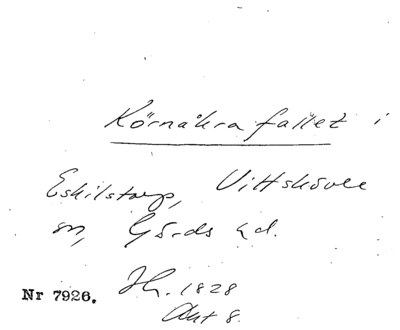 Körnåkra fallet i
Eskilstorp, Vittskövle
sn, Gärds hd.
Nr 7926.
Jh. 1828
Akt 8.